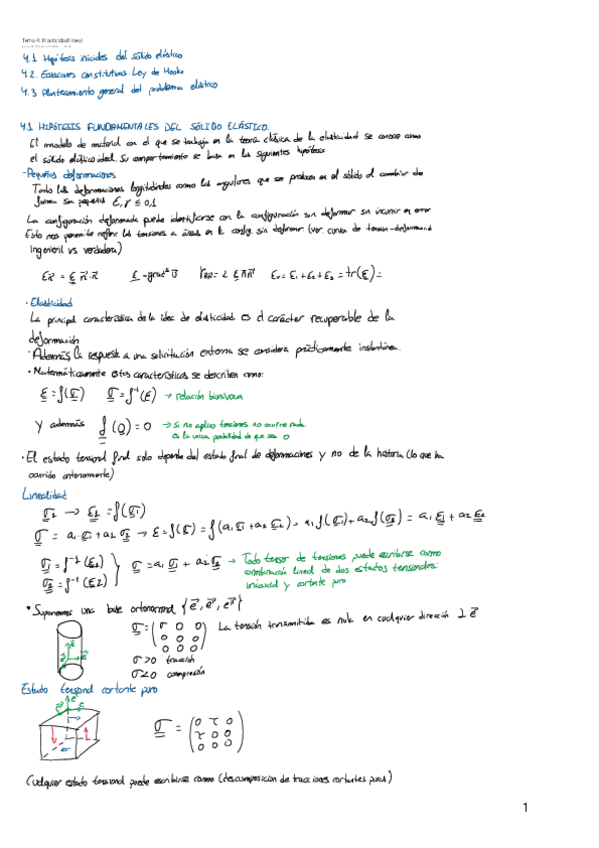 Tema 4: Elasticidad lineal
4.1 Hipótesis iniciales del sólido elástico
4.2. Ecuaciones constitutivas. Ley de Hooke
4.3 Planteamiento general del problema elástico
4.1 HIPÓTESIS FUNDAMENTALES DEL SÓLIDO ELÁSTICO.
El modelo de material con el que se trabaja en la teoría clásica de la elasticidad se conoce como
el sólido elástico ideal. Su comportamiento se basa en las siguientes hipótesis
- Pequeñas deformaciones
Tanto las deformaciones longitudinales como las angulares que se producen en el sólido al cambiar de
forma son pequeñas ε, γ ≤ 0,1
La configuración deformada puede identificarse con la configuración sin deformar sin incurrir en error
Esto nos permite referir las tensiones a áreas en la config. sin deformar (ver. curva de tensión-deformand
Ingenieril vs verdadera)
· Elasticidad
La principal característica de la idea de elasticidad es el carácter recuperable de la
deformación
· Además la respuesta a una solicitación externa se considera prácticamente instantánea.
· Matemáticamente estas características se describen como:
ε = f(σ) σ = f⁻¹(ε) → relación biunívoca
Y además f(0) = 0 → si no aplico tensiones no ocurre nada
es la unica posibilidad de que sea 0
· El estado tensional final solo depende del estado final de deformaciones y no de la historia (lo que ha
ocurrido anteriormente)
Linealidad
σ1 → ε1 = f(σ1)
σ = a1 σ1 + a2 σ2 → ε = f(σ) = f(a1 σ1 + a2 σ2) = a1 f(σ1) + a2 f(σ2) = a1 ε1 + a2 ε2
σ1 = f⁻¹(ε1)
σ2 = f⁻¹(ε2) } σ = a1 σ1 + a2 σ2 → Todo tensor de tensiones puede escribirse como
combinación lineal de dos estados tensionales:
uniaxial y cortante puro
· Suponemos una base ortonormal
σ = (σ 0 0
0 0 0
0 0 0) La tensión transmitida es nula en cualquier dirección ⊥ e
σ>0 tracción
σ<0 compresión
Estado tensional cortante puro
σ = (0 τ 0
τ 0 0
0 0 0)
Cualquier estado tensional puede escribirse como (descomposicion de tracciones cortantes puras)
1